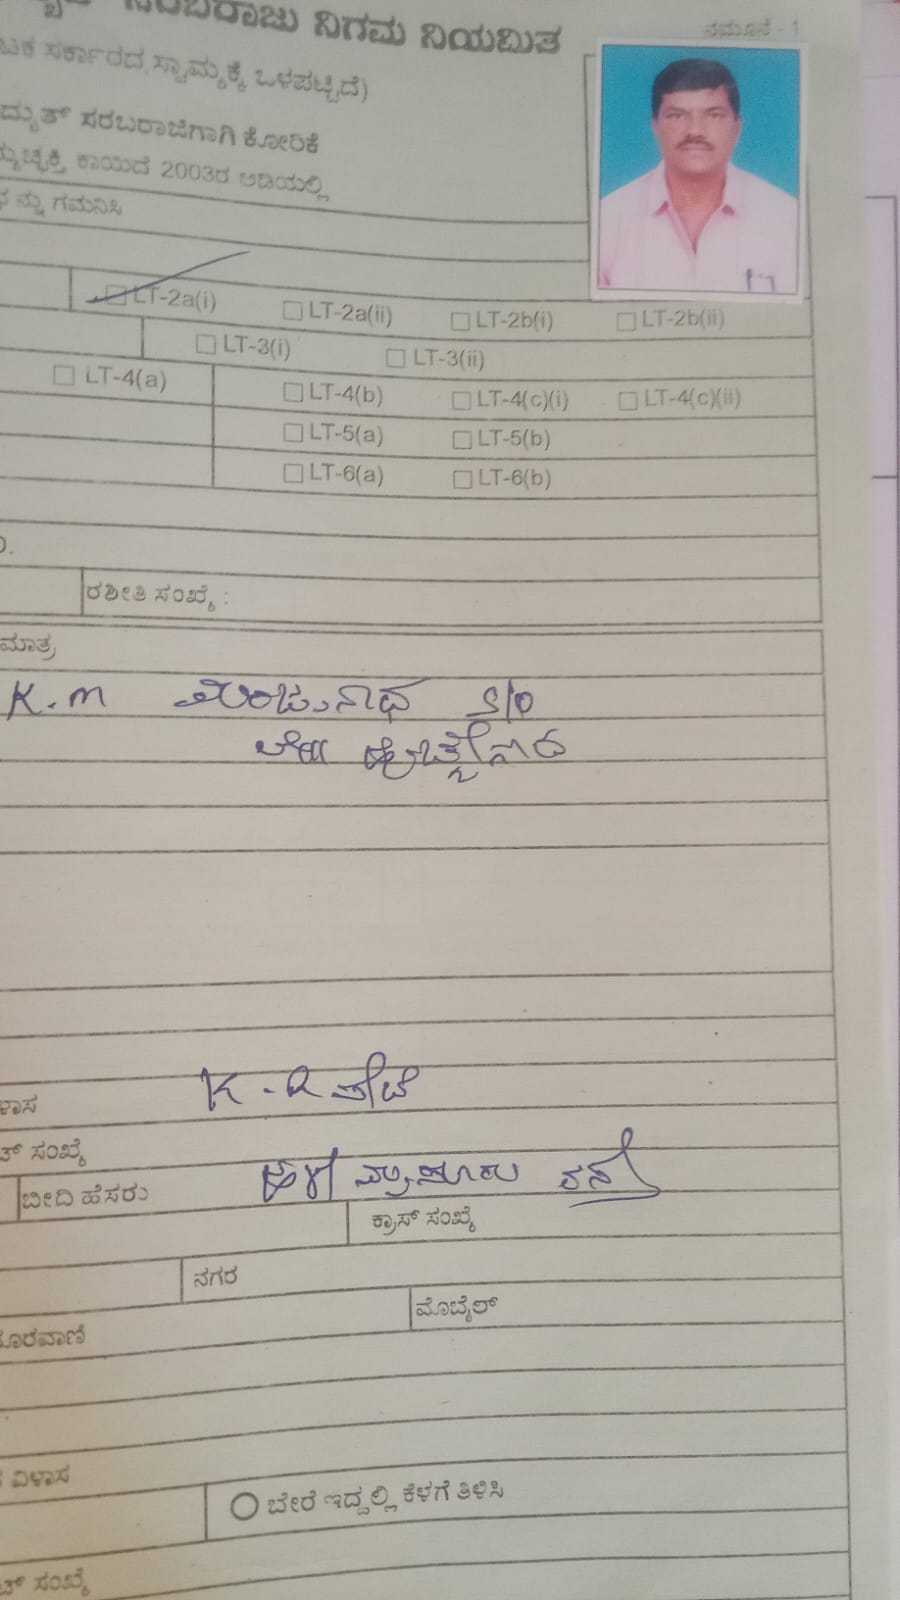 ಸರಬರಾಜು ನಿಗಮ ನಿಯಮಿತ
ನಮೂನೆ - 1
ಸರ್ಕಾರದ ಸ್ವಾಮ್ಯಕ್ಕೆ ಒಳಪಟ್ಟಿದೆ)
ಸರಬರಾಜಿಗಾಗಿ ಕೋರಿಕೆ
ಕಾಯಿದೆ 2003ರ ಅಡಿಯಲ್ಲಿ
ಗಮನಿಸಿ
LT-2a(i) LT-2a(ii) LT-2b(i) LT-2b(ii)
LT-3(i) LT-3(ii)
LT-4(a) LT-4(b) LT-4(c)(i) LT-4(c)(ii)
LT-5(a) LT-5(b)
LT-6(a) LT-6(b)
ರಶೀತಿ ಸಂಖ್ಯೆ :
ಮಾತ್ರ
K.m ಮಂಜುನಾಥ S/o
K.R ಪೇಟೆ
ಸಂಖ್ಯೆ
ಬೀದಿ ಹೆಸರು ರಸ್ತೆ
ಕ್ರಾಸ್ ಸಂಖ್ಯೆ
ನಗರ
ಮೊಬೈಲ್
ವಿಳಾಸ
ಬೇರೆ ಇದ್ದಲ್ಲಿ ಕೆಳಗೆ ತಿಳಿಸಿ
ಸಂಖ್ಯೆ